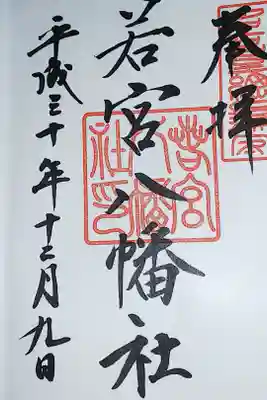 奉拝
若宮八幡社
平成三十年十二月九日
若宮八幡社印